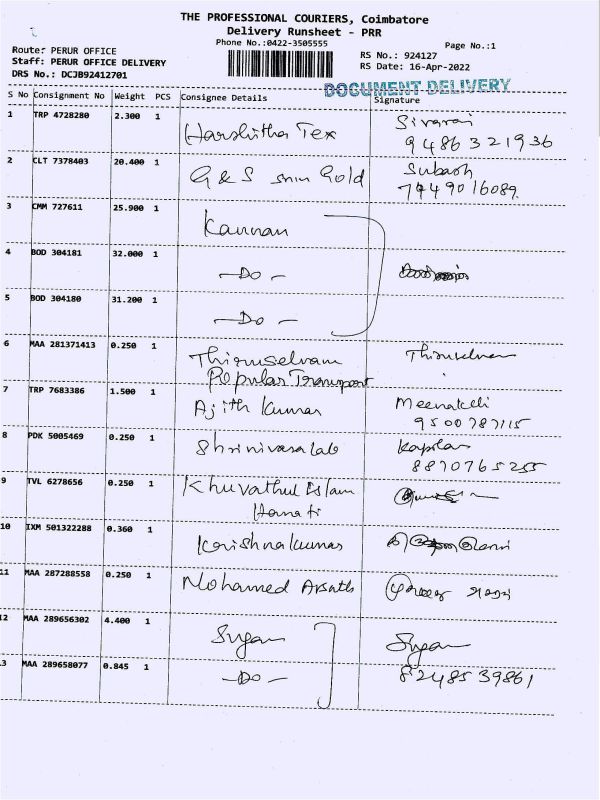 THE PROFESSIONAL COURIERS, Coimbatore
Delivery Runsheet - PRR
Phone No.:0422-3505555
Page No.:1
Route: PERUR OFFICE
Staff: PERUR OFFICE DELIVERY
DRS No.: DCJB92412701
RS No.: 924127
RS Date: 16-Apr-2022
DOCUMENT DELIVERY
S No Consignment No Weight PCS Consignee Details Signature
1 TRP 4728280 2.300 1 Harshitha Tex Sivaraj
9486321936
2 CLT 7378403 20.400 1 G & S Gold Subash
7449016089
3 CMM 727611 25.900 1 Kannan
4 BOD 304181 32.000 1 -Do-
5 BOD 304180 31.200 1 -Do-
6 MAA 281371413 0.250 1 Thiruselvam Thiruselvam
Popular Transport
7 TRP 7683386 1.500 1 Ajith Kumar
9500787115
8 PDK 5005469 0.250 1 Shrinivasa lab Kapilan
8870765255
9 TVL 6278656 0.250 1 Khuvathul Islam
10 IXM 501322288 0.360 1 Krishnakumar
11 MAA 287288558 0.250 1 Mohamed Arsath
12 MAA 289656302 4.400 1 Sugan Sugan
3 MAA 289658077 0.845 1 -Do- 8248539861